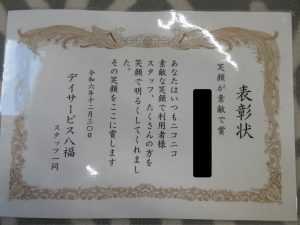 表彰状
笑顔が素敵で賞
あなたはいつもニコニコ
素敵な笑顔で利用者様
スタッフ、たくさんの方を
笑顔で明るくしてくれまし
た。
その笑顔をここに賞します
令和六年十二月三〇日
デイサービス八福
スタッフ一同